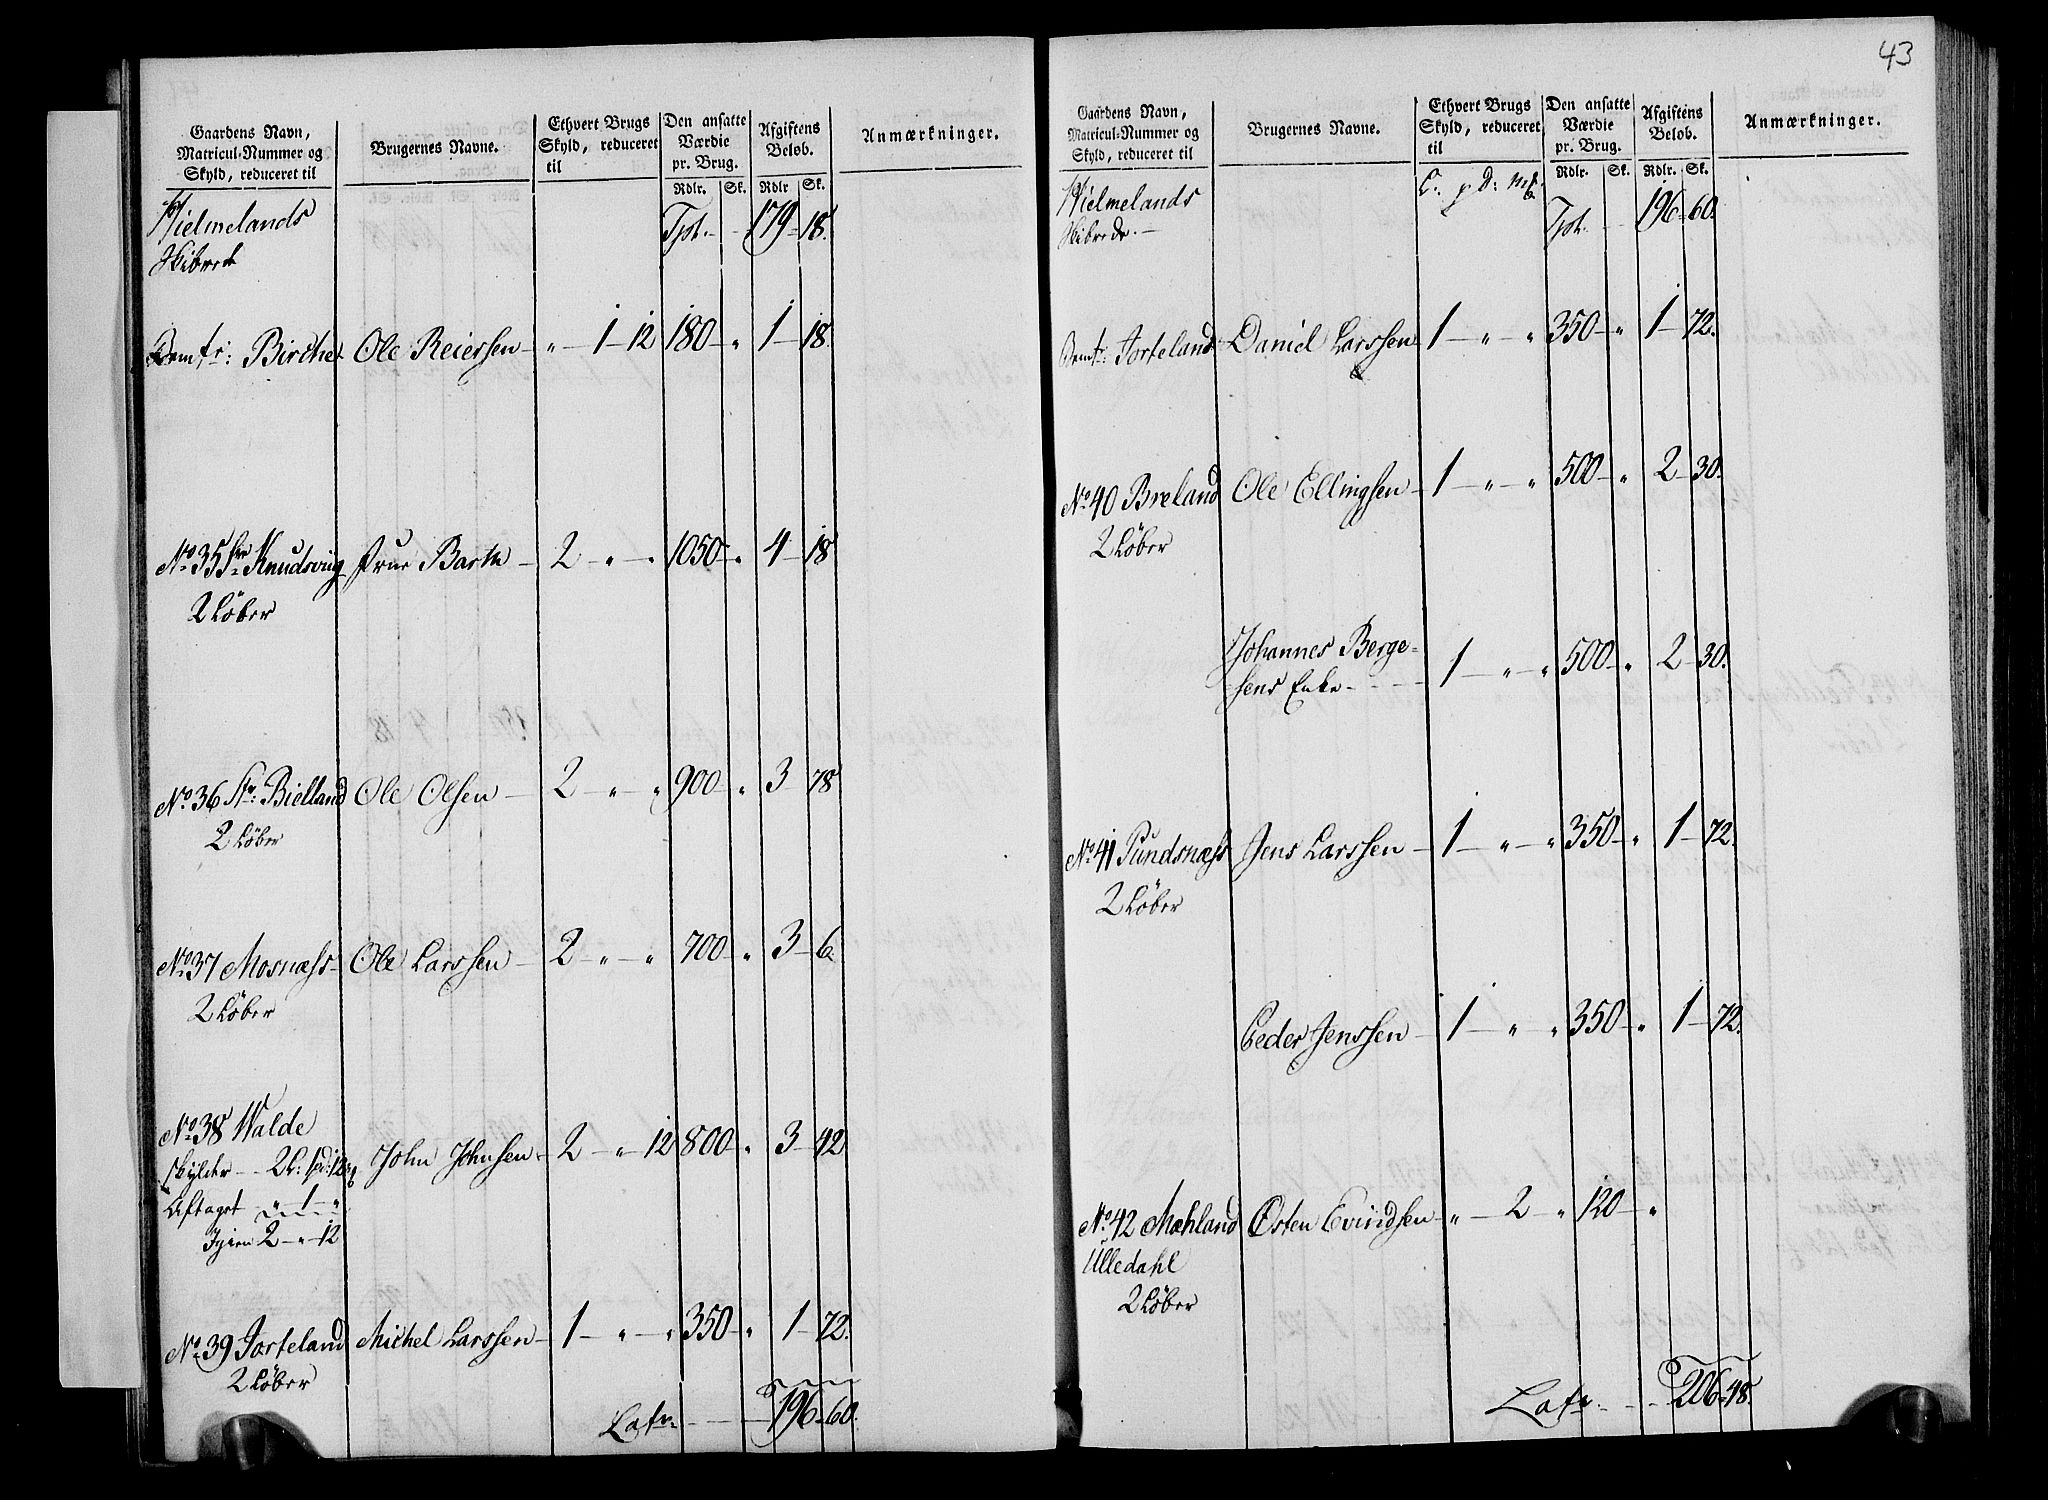 43
Gaardens Navn,
Matricul-Nummer og
Skyld, reduceret til
Brugernes Navne.
Ethvert Brugs
Skyld, reduceret
til
Den ansatte
Værdie
pr. Brug.
Rdlr. Sk.
Afgiftens
Beløb.
Rdlr Sk.
Anmærkninger.
Hielmelands Tpt. 179 - 18.
Skibrede
Bemte: Birche Ole Reiersen - „ - 1 - 12 180 - „ 1 - 18.
No. 35 Knudsvig Frue Barth - 2 - „ - „ 1050 - „ 4 - 18
2 Løber
No. 36 Bielland Ole Olsen - 2 - „ - „ 900 - „ 3 - 78
2 Løber
No. 37 Mosnæss - Ole Larssen - 2 - „ - „ 700 - „ 3 - 6
2 Løber
No. 38 Walde
Skylder - 2 L: 1 pd: 12 John Johnsen - 2 - „ 12 800 - „ 3 - 42
Aftaget „ - 1 - „
Igien 2 - „ - 12
No. 39 Jorteland Michel Larssen - 1 - „ - „ 350 - „ 1 - 72.
2 Løber
Latr. 196 - 60.
Gaardens Navn,
Matricul-Nummer og
Skyld, reduceret til
Brugernes Navne.
Ethvert Brugs
Skyld, reduceret
til
Den ansatte
Værdie
pr. Brug.
Rdlr. Sk.
Afgiftens
Beløb.
Rdlr. Sk.
Anmærkninger.
Hielmelands L: p D: Mk. Tpt. 196 - 60.
Skibrede. -
Bemte: Jorteland Daniel Larssen 1 - „ - „ 350 - „ 1 - 72.
No. 40 Breland Ole Ellingsen - 1 - „ - „ 500 - „ 2 - 30.
2 Løber
Johannes Berge-
sens Enke - 1 - „ - „ 500 - „ 2 - 30.
No. 41 Pundsnæss Jens Larssen - 1 - „ - „ 350 - „ 1 - 72.
2 Løber
Peder Jenssen - 1 - „ - „ 350 - „ 1 - 72.
No. 42 Mæhland Østen Evindsen - „ - 2 - „ 120 - „
Ulledahl
2 Løber
Latr. 206 - 48.